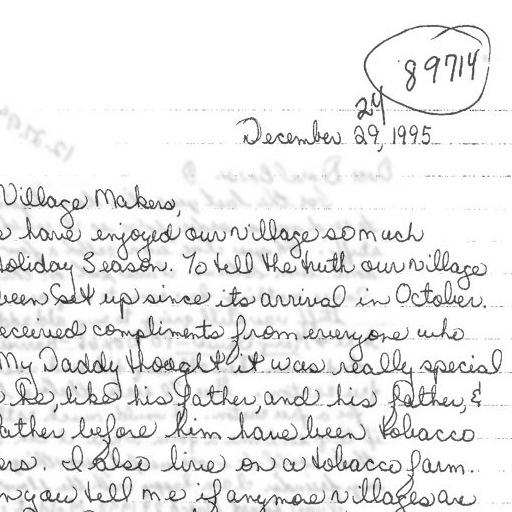 89714
24
December 29, 1995
Village Makers,
e have enjoyed our village so much
Holiday Season. To tell the truth our village
been set up since its arrival in October.
eceived compliments from everyone who
My Daddy thought it was really special
he, like his father, and his father, &
ather before him have been tobacco
ers. I also live on a tobacco farm.
n you tell me if anymore villages are